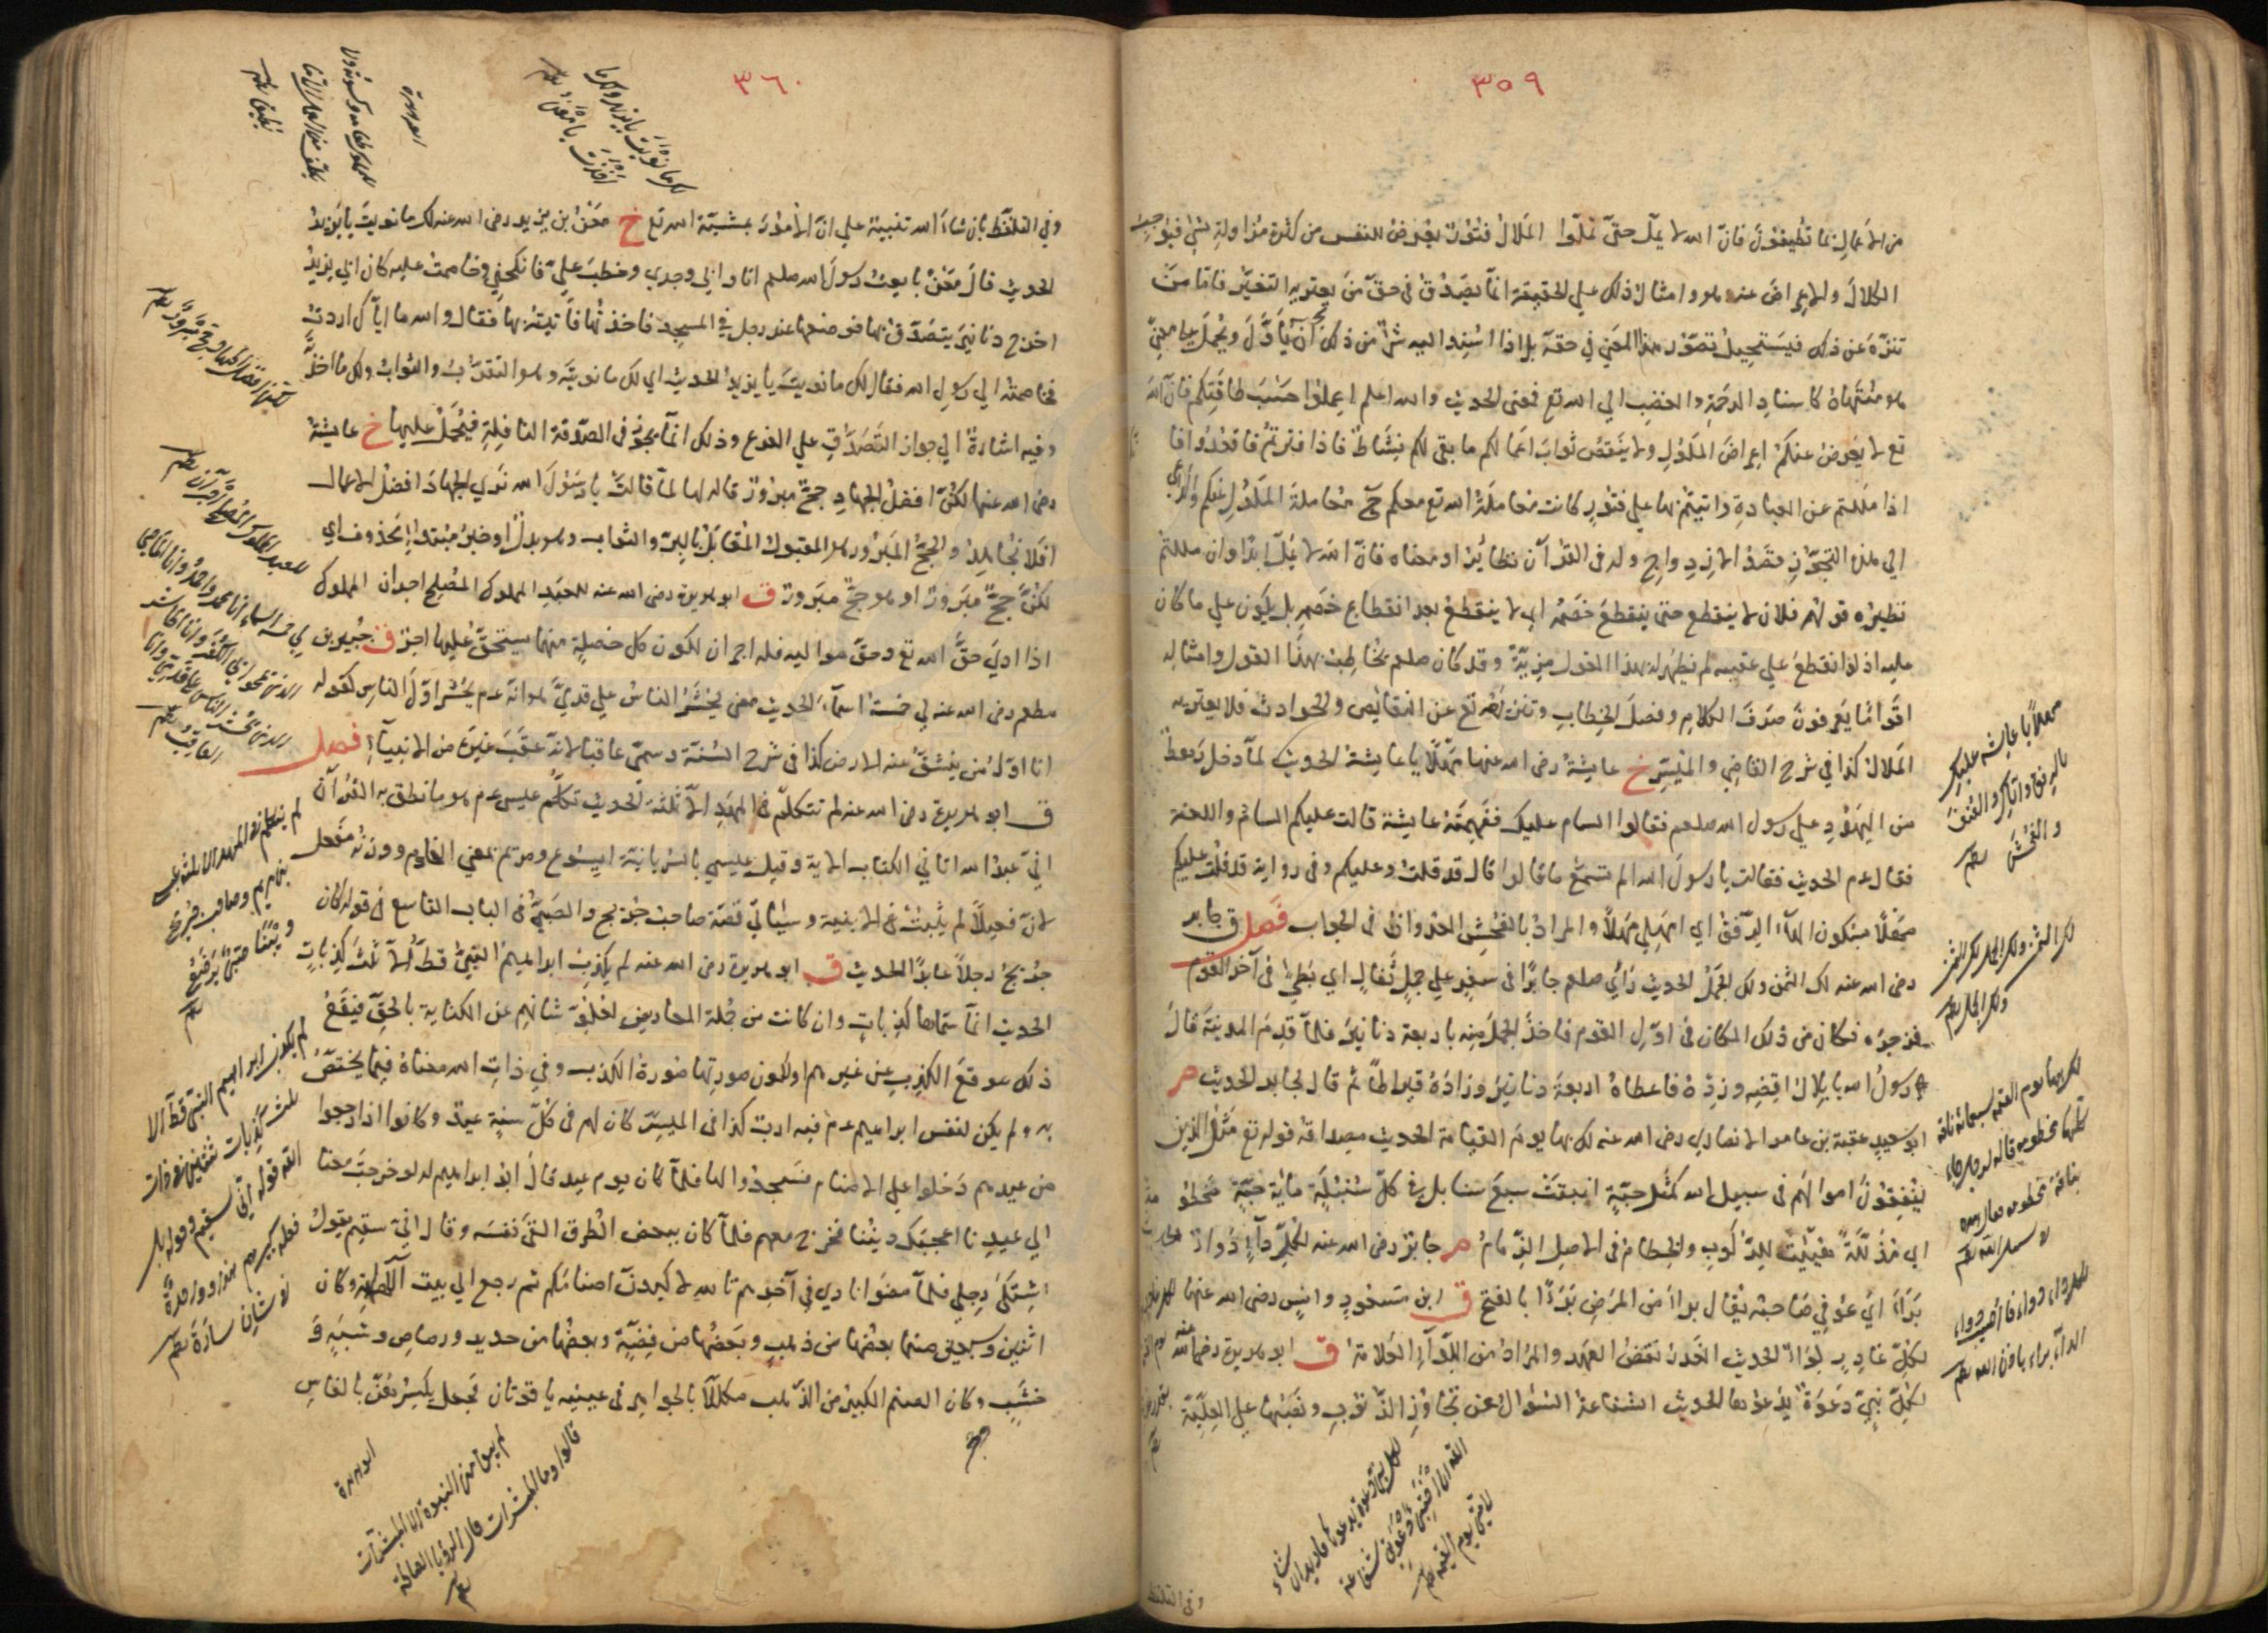 ٣٥٩
من الاعمال بما تطيقون فانّ الله لا يملّ حتّى تملّوا الملال فتور يعرض للنفس من كثرة مزاولة شئ فيوجب
الكلال والاعراض عنه وهو وامثال ذلك علي الحقيقة انّما يصدق في حقّ من يعتريه التغيّر فامّا من
تنزّه عن ذلك فيستحيل تصوّر هذا المعني في حقه بل اذا اسند اليه شئ من ذلك يجب ان يأوّل ويحمل علي ما معنيّ
هو منتهاه كاسناد الرحمة والغضب الي الله تع فمعنى الحديث والله اعلم اعملوا حسب طاقتكم فان الله
تع لا يعرض عنكم اعراض الملول ولا ينقص ثواب اعمالكم ما بقي لكم نشاط فاذا فترتم فاقعدوا فا
اذا مللتم عن العبادة واتيتم بها علي فتور كانت معاملة الله تع معكم ح معاملة الملول عنكم والداعي
الي هذا التجوّز قصد الازدواج وله في القرآن نظائر او معناه فانّ الله لا يملّ ابدا وان مللتم
نظيره قولهم فلان لا ينقطع حتى ينقطع خصمه اي لا ينقطع بعد انقطاع خصمه بل يكون علي ما كان
عليه اذ لو انقطع علي عقيبه لم يظهر له بهذا القول مزيّة وقد كان صلعم يخاطب بهذا القول وامثاله
اقواما يعرفون صرف الكلام وفصل الخطاب وتنزّهه تع عن النقايص والحوادث فلا يعتريه
الملال كذا في شرح القاضي والميسّر خ عايشة رضى الله عنها مهلًا يا عايشة الحديث لمّا دخل رهط
من اليهود علي رسول الله صلعم فقالوا السام عليك ففهمته عايشة قالت عليكم السام واللعنة
فقال عم الحديث فقالت يا رسول الله الم تسمع ما قالوا قال قد قلت وعليكم وفى رواية قد قلت عليكم
مهلًا بسكون الهاء الرفق اي امهلي مهلًا والمراد بالفحش العدوان في الجواب فصل ق جابر
رضى الله عنه لك الثمن ولك الجمل الحديث رأي صلعم جابرا في سفر علي جمل ثفال اي بطئ فى آخر القوم
فزجره فكان من ذلك المكان في اوّل القوم فاخذ الجمل منه باربعة دنانير فلمّا قدم المدينة قال
رسول الله يا بلال اقضه وزده فاعطاه اربعة دنانير وزاده قيراطا ثم قال لجابر الحديث م
ابو سعيد عقبة بن عامر الانصاري رضى الله عنه لك بها يوم القيامة الحديث مصداقه قوله تع مثل الذين
ينفقون اموالهم فى سبيل الله كمثل حبّة انبتت سبع سنابل فى كلّ سنبلة مائة حبّة مخطو
اي مذلّلة هيّئت للركوب والخطام فى الاصل الزمام م جابر رضى الله عنه لكلّ داء دواء
برأ اي عوفي صاحبه يقال برأ من المرض برءًا بالفتح ق ابن مسعود وانس رضى الله عنهما
لكلّ غادر لواء الحديث الغدر نقض العهد والمراد من اللواء العلامة ق ابو هريرة رضى الله عنه
لكلّ نبيّ دعوة يدعوها الحديث الشفاعة السؤال عن تجاوز الذنوب ونصبها علي العلّيّة
وفي التلفظ
مهلًا يا عايشه عليكِ
بالرفق واياكِ والعنف
والفحش
لك الثمن ولك الجمل لك الثمن
ولك الجمل
لك بها يوم القيمة سبعمائة ناقة
كلها مخطومة قاله لرجل جاء
بناقة مخطومة
لكل داء دواء فاذا اصيب دواء
الداء براء باذن الله
لكل نبي دعوة يدعوها فاريد ان شاء
الله ان اختبئ دعوتي شفاعة
لامتي يوم القيمة
٣٦٠
وفي التلفّظ بان شاء الله تنبيه علي انّ الامور بمشيّة الله تع خ معن بن يزيد رضى الله عنه لك ما نويت يا يزيد
الحديث قال معن بايعت رسول الله صلعم انا وابي وجدي وخطب عليّ فانكحني وخاصمت عليه كان ابي يزيد
اخرج دنانير يتصدّق بها فوضعها عند رجل في المسجد فاخذتها فاتيته بها فقال والله ما ايّاك اردت
فخاصمته الي رسول الله فقال لك ما نويت يا يزيد الحديث اي لك ما نويته وهو التقرّب والثواب ولك ما اخذته
وفيه اشارة الي جواز التصدّق علي الفرع وذلك انّما يجوز فى الصدقة النافلة فيحمل عليها خ عايشة
رضى الله عنها لكنّ افضل الجهاد حجّ مبرور قاله لها لمّا قالت يا رسول الله نري الجهاد افضل الاعمال
افلا نجاهد والحجّ المبرور هو المقبول المقابل بالبرّ والثواب وهو بدل او خبر مبتدأ محذوف اي
لكنّ حجّ مبرور او هو حجّ مبرور ق ابو هريرة رضى الله عنه للعبد المملوك المصلح اجران المملوك
اذا ادّي حقّ الله تع وحقّ مواليه فله اجران لكون كل خصلة منهما يستحقّ عليها اجر ق جبير بن
مطعم رضى الله عنه لي خمسة اسماء الحديث معني يحشر الناس علي قدميّ هو انّه عم يحشر اوّل الناس لقوله
انا اوّل من ينشقّ عنه الارض كذا فى شرح السنّة وسمّى عاقبا لانّه عقب غيره من الانبياء فصل
ق ابو هريرة رضى الله عنه لم يتكلّم في المهد الّا ثلثة الحديث تكلّم عيسى عم هو ما نطق به القرآن
انّي عبد الله اتاني الكتاب الاية وقيل عيسي بالسريانية ايسوع ومريم بمعني الخادم ووزنه مفعل
لانّ فعيلًا لم يثبت في الابنية وسيأتي قصّة صاحب جريج والصبيّ فى الباب التاسع في قوله كان
جريج رجلًا عابدًا الحديث ق ابو هريرة رضى الله عنه لم يكذب ابراهيم النبيّ قطّ الّا ثلث كذبات
الحديث انّما سمّاها كذبات وان كانت من جملة المعاريض لعلوّ شانهم عن الكناية بالحقّ فيقع
ذلك موقع الكذب عن غيرهم او لكون صورتها صورة الكذب وفي ذات الله معناه فيما يختصّ
به ولم يكن لنفس ابراهيم عم فيه ارب كذا فى الميسّر كان لهم فى كلّ سنة عيد وكانوا اذا رجعوا
من عيدهم دخلوا علي الاصنام فسجدوا لها فلمّا كان يوم عيد قال ابو ابراهيم له لو خرجت معنا
الي عيدنا اعجبك ديننا فخرج معهم فلمّا كان ببعض الطرق القى نفسه وقال انّي سقيم يقول
اشتكي رجلي فلمّا مضوا نادي في آخرهم تالله لاكيدنّ اصنامكم ثم رجع الي بيت الآلهة وكان
اثنين وسبعين صنما بعضها من ذهب وبعضها من فضّة وبعضها من حديد ورصاص وشبه و
خشب وكان الصنم الكبير من الذهب مكلّلًا بالجواهر فى عينيه ياقوتتان فجعل يكسرهنّ بالفاس
لك ما نويت يا يزيد ولك ما
اخذت يا معن
ابو هريرة
لكن افضل الجهاد حج مبرور
للعبد المملوك المصلح اجران
لي خمسة اسماء انا محمد واحمد وانا الماحي
الذي يمحو الله بي الكفر وانا الحاشر
الذي يحشر الناس على قدمي وانا
العاقب
لم يتكلم في المهد الا ثلثة عيسى
بن مريم وصاحب جريج
وبينا صبي يرضع
لم يكذب ابراهيم النبي قط الا
ثلث كذبات ثنتين في ذات
الله قوله اني سقيم وقوله بل
فعله كبيرهم هذا وواحدة
في شان سارة
ابو هريرة
لم يبق من النبوة الا المبشرات
قالوا وما المبشرات قال الرؤيا الصالحة